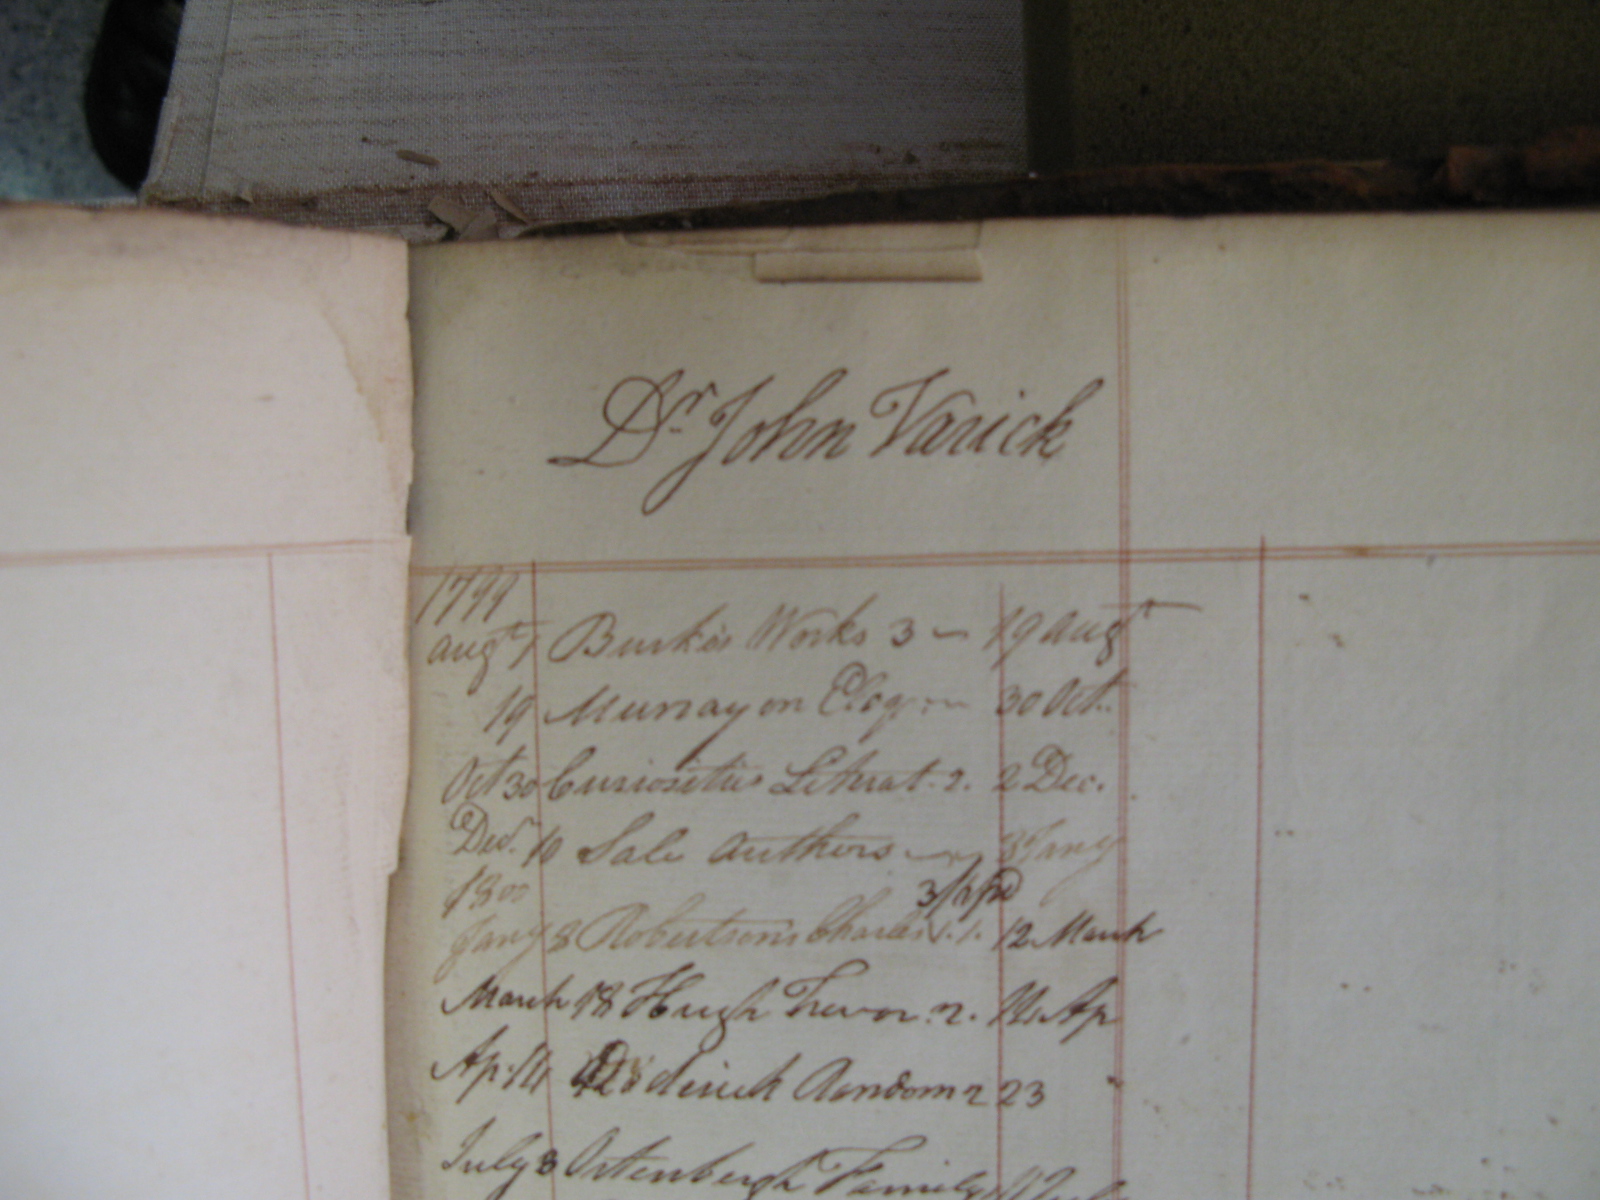 Dr John Varick
1799
augt 1 Burkes Works 3 19 augt
19 Murray on Eloq 30 Oct.
Oct 30 Curiosities Literat. 2. 2 Dec.
Decr. 10 Sale Authors 3 Jany
1800
Jany 8 Robertsons Charles 12 March
March 18 Hugh Trevor. 2. 14 Ap
Ap. 14 Roderick Random 2 23
July 8 Ortenbergh Family